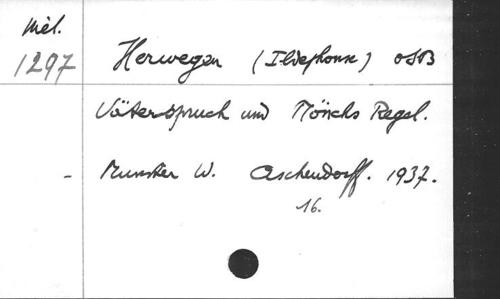 Mél.
1297 Herwegen (Ildephonse) OSB
Väterspruch und Mönchs Regel.
- Munster W. Aschendorff. 1937.
16.